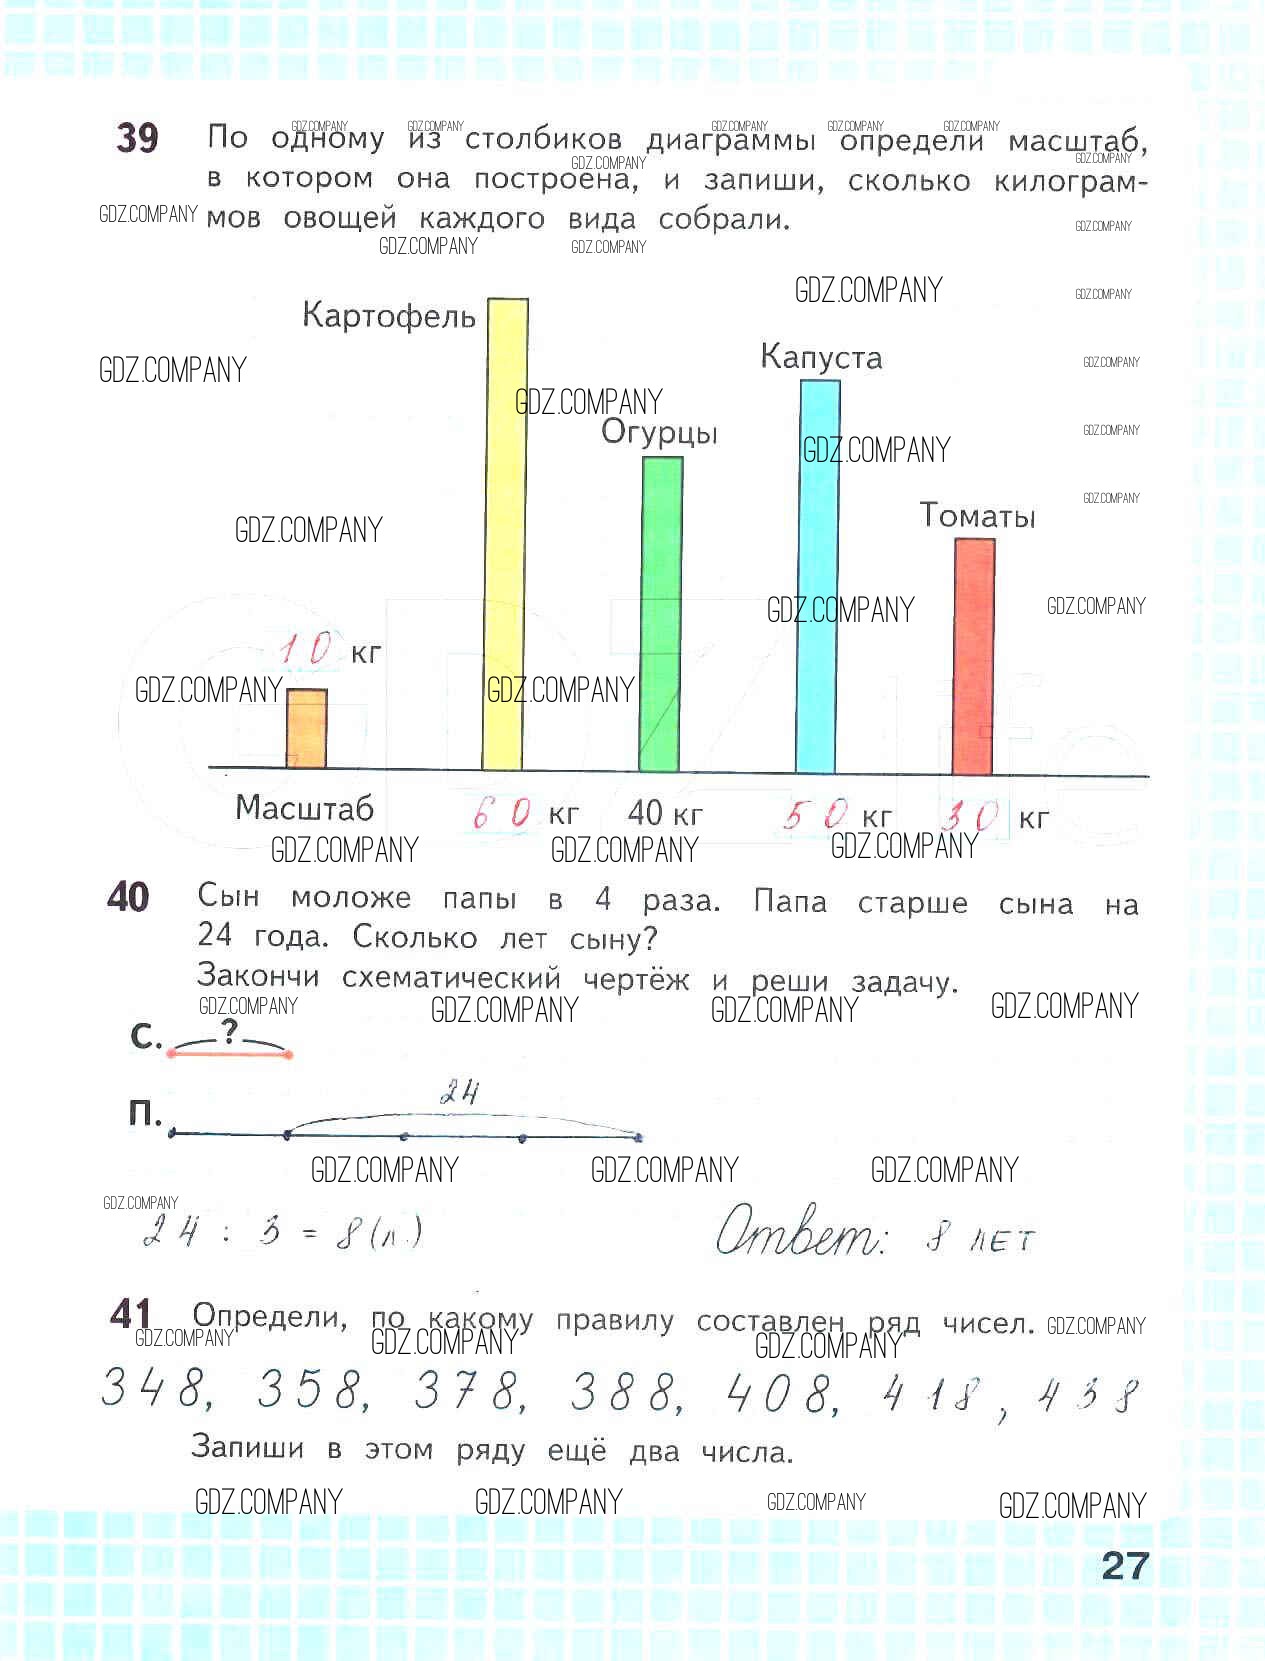 39 По одному из столбиков диаграммы определи масштаб,
в котором она построена, и запиши, сколько килограм-
мов овощей каждого вида собрали.
Картофель
Капуста
Огурцы
Томаты
10 кг
Масштаб 60 кг 40 кг 50 кг 30 кг
40 Сын моложе папы в 4 раза. Папа старше сына на
24 года. Сколько лет сыну?
Закончи схематический чертёж и реши задачу.
С. ?
24
П.
24 : 3 = 8 (л.) Ответ: 8 лет
41 Определи, по какому правилу составлен ряд чисел.
348, 358, 378, 388, 408, 418, 438
Запиши в этом ряду ещё два числа.
GDZ.COMPANY
27